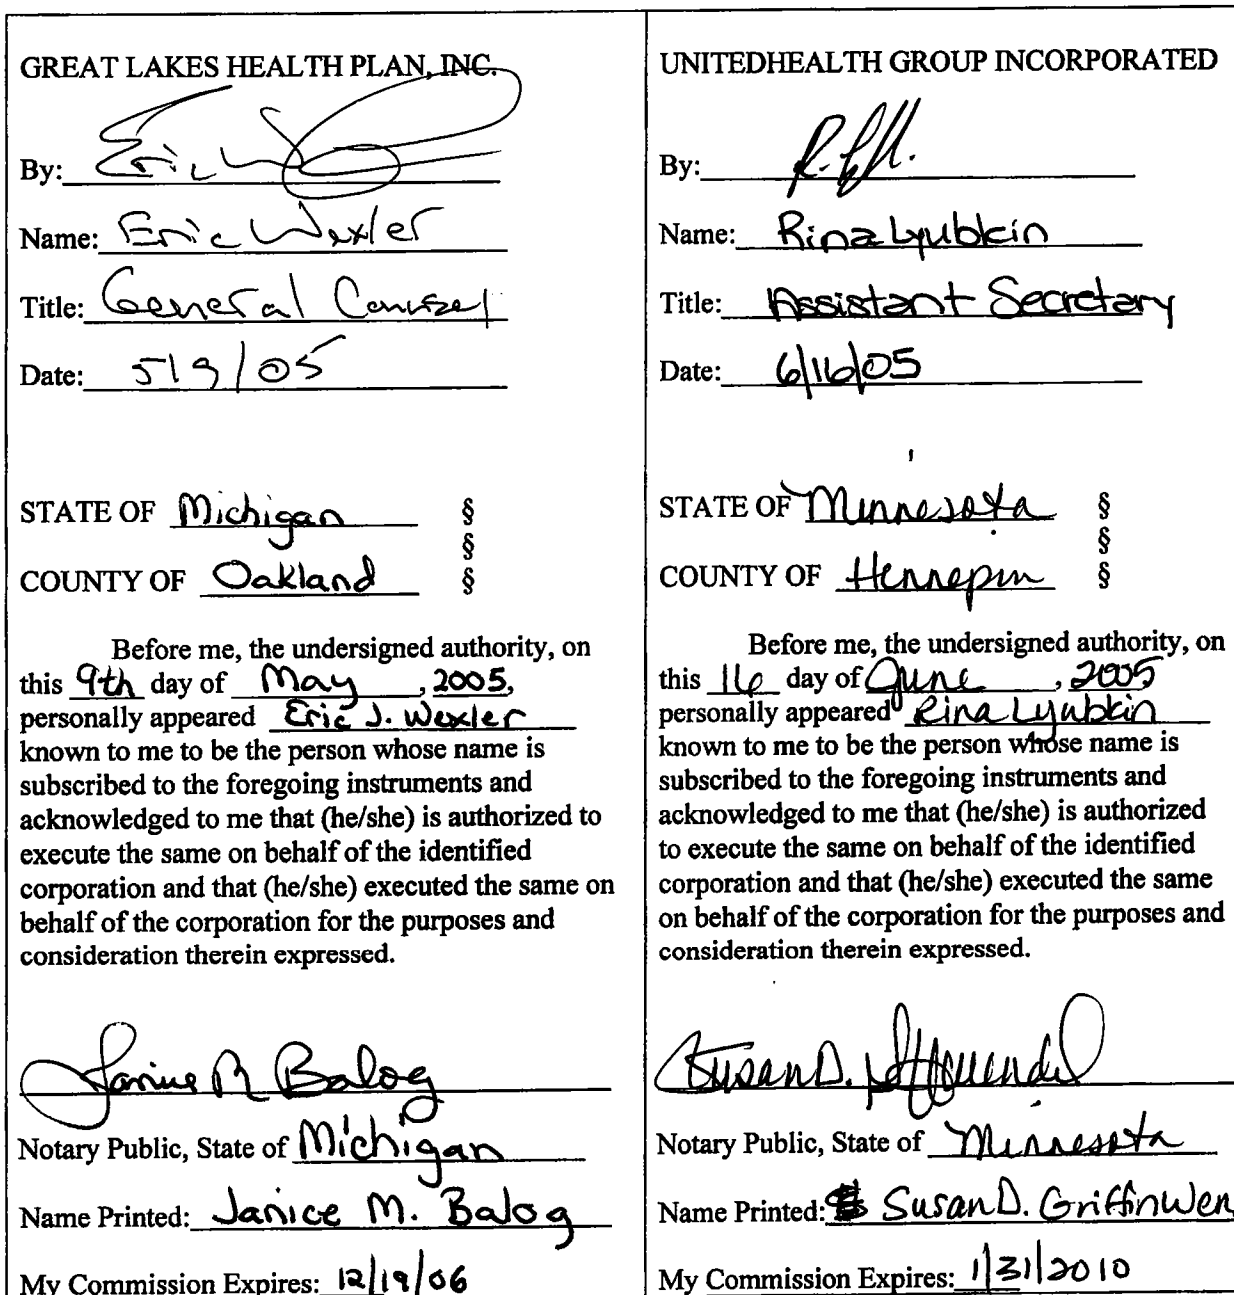 GREAT LAKES HEALTH PLAN, INC.
By: Eric W
Name: Eric Wexler
Title: General Counsel
Date: 5/9/05
STATE OF Michigan §
§
COUNTY OF Oakland §
Before me, the undersigned authority, on
this 9th day of May, 2005,
personally appeared Eric J. Wexler
known to me to be the person whose name is
subscribed to the foregoing instruments and
acknowledged to me that (he/she) is authorized to
execute the same on behalf of the identified
corporation and that (he/she) executed the same on
behalf of the corporation for the purposes and
consideration therein expressed.
Janice M Balog
Notary Public, State of Michigan
Name Printed: Janice M. Balog
My Commission Expires: 12/19/06
UNITEDHEALTH GROUP INCORPORATED
By:
Name: Rina Lyubkin
Title: Assistant Secretary
Date: 6/16/05
STATE OF Minnesota §
§
COUNTY OF Hennepin §
Before me, the undersigned authority, on
this 16 day of June, 2005
personally appeared Rina Lyubkin
known to me to be the person whose name is
subscribed to the foregoing instruments and
acknowledged to me that (he/she) is authorized
to execute the same on behalf of the identified
corporation and that (he/she) executed the same
on behalf of the corporation for the purposes and
consideration therein expressed.
Susan D.
Notary Public, State of Minnesota
Name Printed: Susan D. GriffinWen
My Commission Expires: 1/31/2010